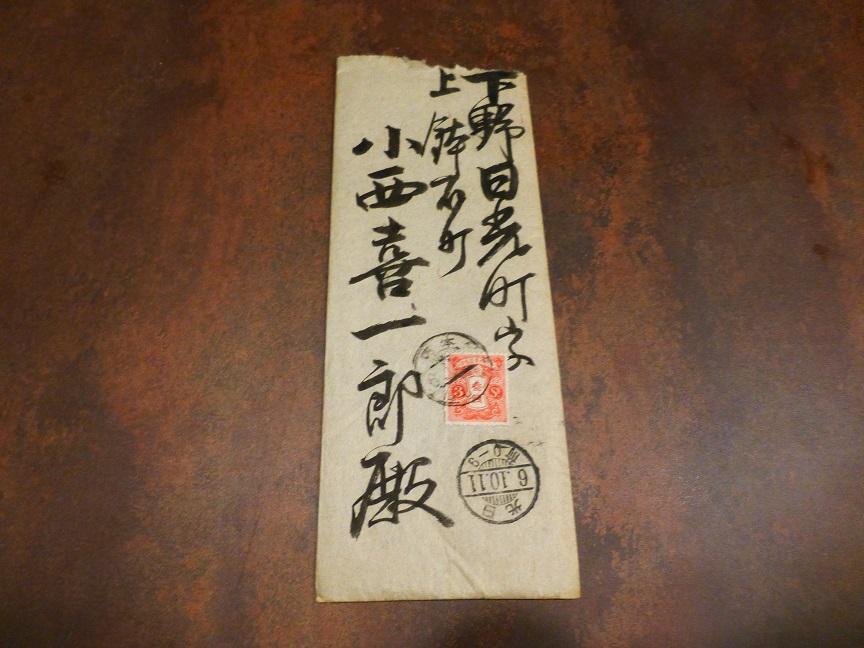 下野日光町字
上鉢石町
小西喜一郎殿
3
光日
6.10.11
前0-8